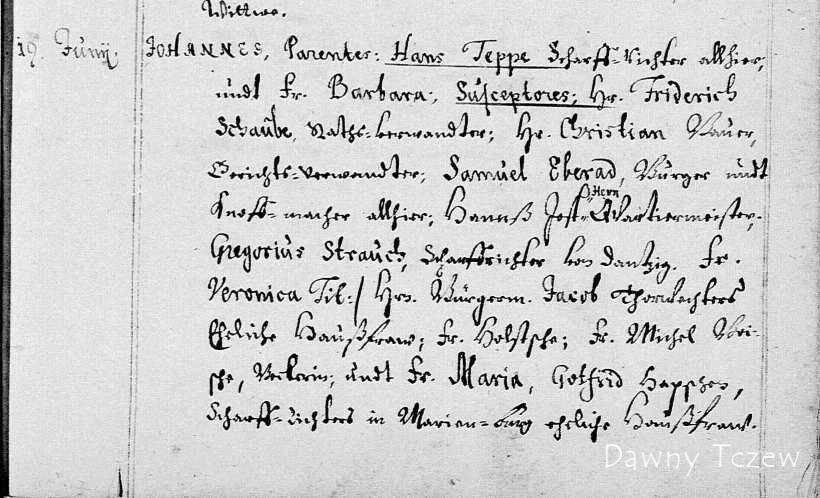 Wittwe.
19. Junij. JOHANNES, Parentes: Hans Teppe Scharff-Richter allhier,
undt Fr. Barbara, Susceptores; Hr. Friderich
Schaube, Raths-verwandter; Hr. Christian Bauer,
Gerichts-verwandter; Samuel Eberad, Bürger undt
Herrn
Knopf-macher allhier; Hannß Jost Quartiermeister;
Gregorius Strauch, Scharffrichter von Dantzig. Fr.
Veronica Tit: / Hrn. Bürgerm. Jacob
Eheliche Haußfraw; Fr. Holstsche; Fr. Michel
undt Fr. Maria, Gotfrid
Scharff-Richters in Marien-burg eheliche Haußfraw.
Dawny Tczew